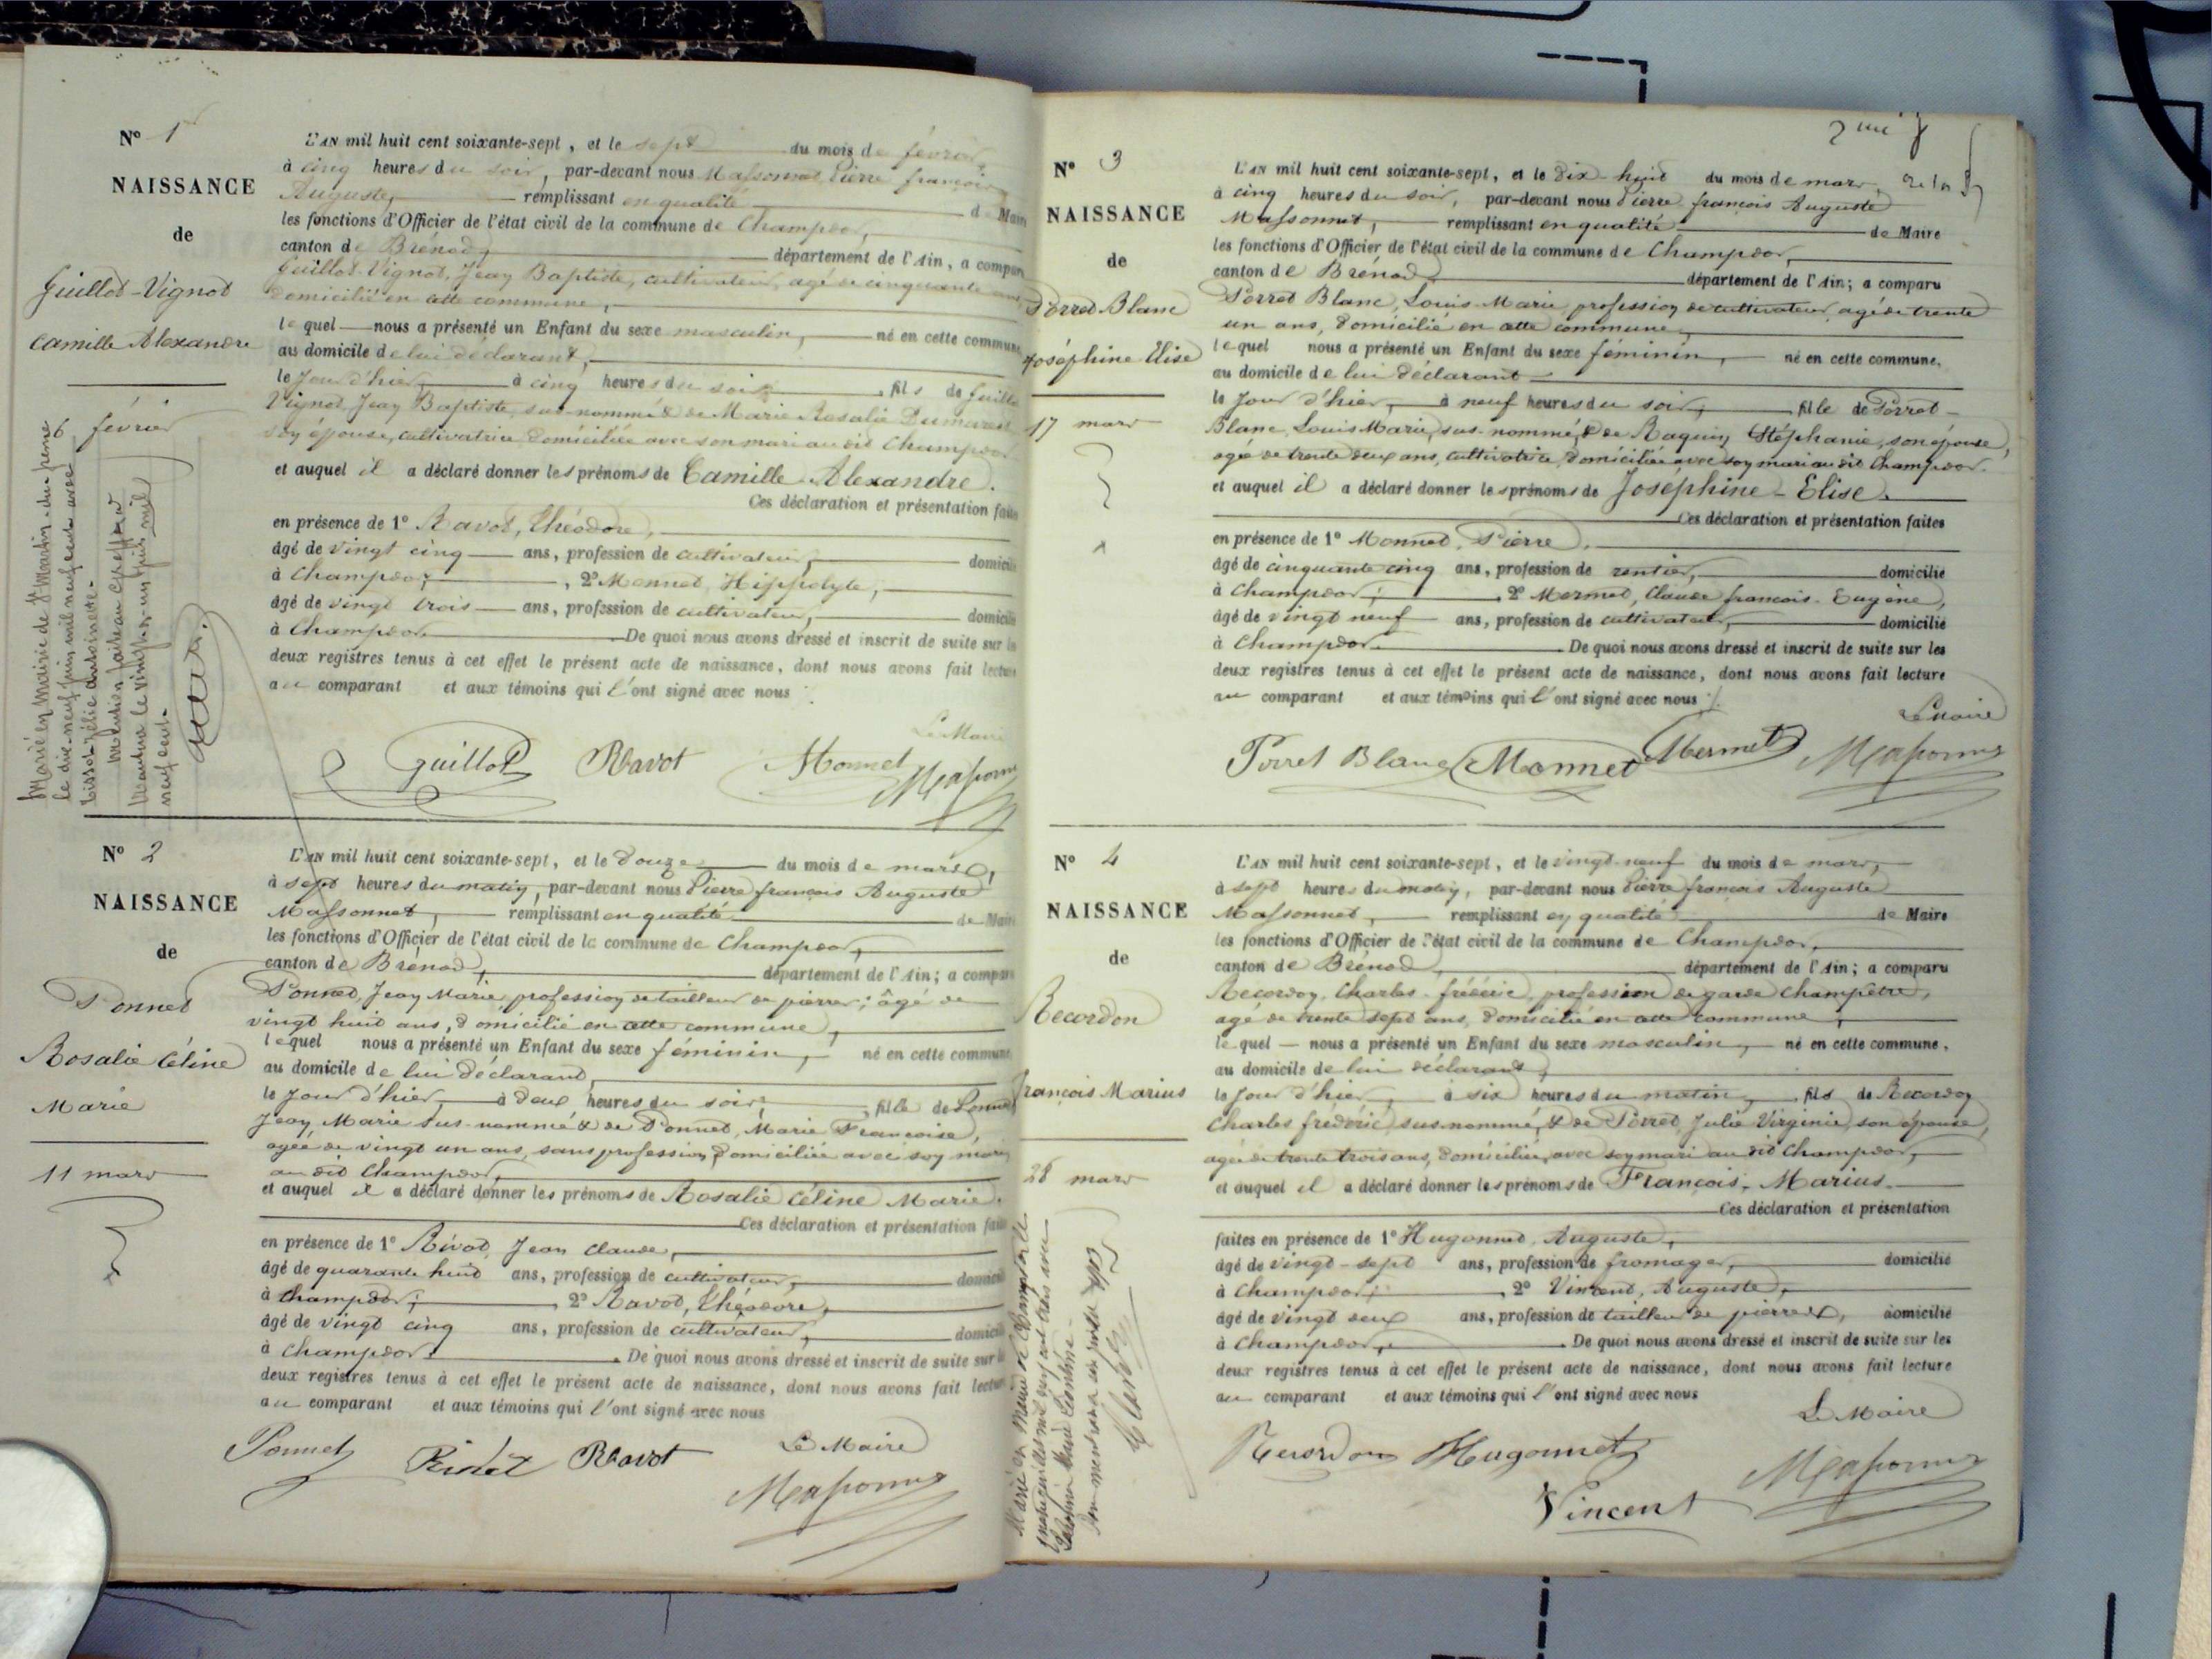 N° 1
NAISSANCE
de
Guillot-Vignot
Camille Alexandre
6 février
Marié en Mairie de St Martin-du-frene
le dix-neuf juin mil neuf cent avec
Tissot Zélie Antoinette.
Mention faite au greffe à
Nantua le vingt-un juin mil
neuf cent.
L'AN mil huit cent soixante-sept, et le sept du mois de février
à cinq heures du soir, par-devant nous Massonnet, Pierre françois
Auguste, remplissant en qualité de Maire
les fonctions d'Officier de l'état civil de la commune de Champdor,
canton de Brénod, département de l'Ain, a comparu
Guillot-Vignot, Jean Baptiste, cultivateur, agé de cinquante ans,
domicilié en cette commune,
lequel nous a présenté un Enfant du sexe masculin, né en cette commune
au domicile de lui déclarant,
le jour d'hier, à cinq heures du soir, fils de Guillot
Vignot, Jean Baptiste, sus-nommé & de Marie Rosalie Dumarest
son épouse, cultivatrice domiciliée avec son mari au dit Champdor
et auquel il a déclaré donner les prénoms de Camille Alexandre.
Ces déclaration et présentation faites
en présence de 1° Ravot, Théodore,
âgé de vingt cinq ans, profession de cultivateur, domicilié
à Champdor, 2° Monnet, Hippolyte,
âgé de vingt trois ans, profession de cultivateur, domicilié
à Champdor. De quoi nous avons dressé et inscrit de suite sur les
deux registres tenus à cet effet le présent acte de naissance, dont nous avons fait lecture
au comparant et aux témoins qui l'ont signé avec nous
Le Maire
Guillot Ravot Monnet Massonnet
N° 2
NAISSANCE
de
Ponnet
Rosalie Céline
Marie
11 mars
L'AN mil huit cent soixante-sept, et le douze du mois de mars,
à sept heures du matin, par-devant nous Pierre françois Auguste
Massonnet, remplissant en qualité de Maire
les fonctions d'Officier de l'état civil de la commune de Champdor,
canton de Brénod, département de l'Ain; a comparu
Ponnet, Jean Marie, profession de tailleur de pierres; âgé de
vingt huit ans, domicilié en cette commune,
lequel nous a présenté un Enfant du sexe féminin, né en cette commune
au domicile de lui déclarant,
le jour d'hier, à deux heures du soir, fille de Ponnet
Jean Marie sus-nommé & de Ponnet, Marie Françoise,
agée de vingt un ans, sans profession, domiciliée avec son mari
au dit Champdor,
et auquel il a déclaré donner les prénoms de Rosalie Céline Marie.
Ces déclaration et présentation faites
en présence de 1° Rivot, Jean Claude,
âgé de quarante huit ans, profession de cultivateur, domicilié
à Champdor; 2° Ravot, Théodore,
âgé de vingt cinq ans, profession de cultivateur, domicilié
à Champdor. De quoi nous avons dressé et inscrit de suite sur les
deux registres tenus à cet effet le présent acte de naissance, dont nous avons fait lecture
au comparant et aux témoins qui l'ont signé avec nous
Le Maire
Ponnet Ravot Massonnet
N° 3
NAISSANCE
de
Porret Blanc
Joséphine Elise
17 mars
L'AN mil huit cent soixante-sept, et le dix-huit du mois de mars,
à cinq heures du soir, par-devant nous Pierre françois Auguste
Massonnet, remplissant en qualité de Maire
les fonctions d'Officier de l'état civil de la commune de Champdor,
canton de Brénod département de l'Ain; a comparu
Porret Blanc, Louis Marie, profession de cultivateur, agé de trente
un ans, domicilié en cette commune,
lequel nous a présenté un Enfant du sexe féminin, né en cette commune,
au domicile de lui déclarant
le jour d'hier, à neuf heures du soir, fille de Porret-
Blanc, Louis Marie, sus-nommé, & de Raquin Stéphanie, son épouse,
agée de trente deux ans, cultivatrice, domiciliée avec son mari au dit Champdor.
et auquel il a déclaré donner les prénoms de Joséphine-Elise.
Ces déclaration et présentation faites
en présence de 1° Monnet, Pierre,
âgé de cinquante cinq ans, profession de rentier, domicilié
à Champdor; 2° Mermet, Claude françois-Eugène,
âgé de vingt neuf ans, profession de cultivateur, domicilié
à Champdor. De quoi nous avons dressé et inscrit de suite sur les
deux registres tenus à cet effet le présent acte de naissance, dont nous avons fait lecture
au comparant et aux témoins qui l'ont signé avec nous
Le Maire
Porret Blanc Monnet Mermet Massonnet
N° 4
NAISSANCE
de
Recordon
françois Marius
28 mars
L'AN mil huit cent soixante-sept, et le vingt-neuf du mois de mars,
à sept heures du matin, par-devant nous Pierre françois Auguste
Massonnet, remplissant en qualité de Maire
les fonctions d'Officier de l'état civil de la commune de Champdor,
canton de Brénod, département de l'Ain; a comparu
Recordon, Charles-frédéric, profession de garde Champêtre,
agé de trente sept ans, domicilié en cette commune,
lequel nous a présenté un Enfant du sexe masculin, né en cette commune,
au domicile de lui déclarant,
le jour d'hier, à six heures du matin, fils de Recordon
Charles frédéric, sus-nommé, & de Porret, Julie Virginie, son épouse,
agée de trente trois ans, domiciliée avec son mari au dit Champdor,
et auquel il a déclaré donner les prénoms de François-Marius.
Ces déclaration et présentation
faites en présence de 1° Hugonnet, Auguste,
âgé de vingt-sept ans, profession de fromager, domicilié
à Champdor; 2° Vincent, Auguste,
âgé de vingt deux ans, profession de tailleur de pierres, domicilié
à Champdor, De quoi nous avons dressé et inscrit de suite sur les
deux registres tenus à cet effet le présent acte de naissance, dont nous avons fait lecture
au comparant et aux témoins qui l'ont signé avec nous
Le Maire
Recordon Hugonnet Massonnet
Vincent